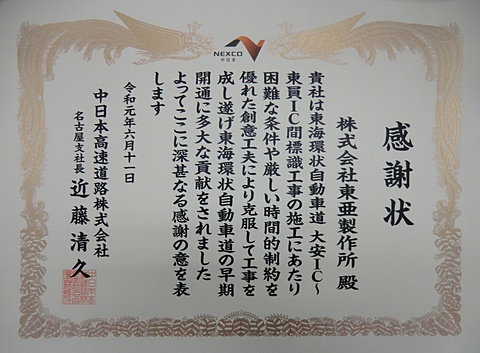 NEXCO
中日本
感謝状
株式会社東亜製作所 殿
貴社は東海環状自動車道 大安IC～
東員IC間標識工事の施工にあたり
困難な条件や厳しい時間的制約を
優れた創意工夫により克服して工事を
成し遂げ東海環状自動車道の早期
開通に多大な貢献をされました
よってここに深甚なる感謝の意を表
します
令和元年六月十一日
中日本高速道路株式会社
名古屋支社長 近藤清久